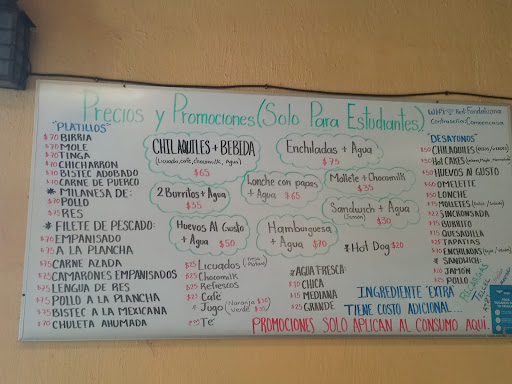 Precios y Promociones (Solo Para Estudiantes)
"PLATILLOS"
$70 BIRRIA
$70 MOLE
$70 TINGA
$70 CHICHARRON
$70 BISTEC ADOBADO
$70 CARNE DE PUERCO
* MILANESA DE:
$70 POLLO
$75 RES
* FILETE DE PESCADO:
$70 EMPANISADO
$75 A LA PLANCHA
$75 CARNE AZADA
$75 CAMARONES EMPANISADOS
$75 LENGUA DE RES
$75 POLLO A LA PLANCHA
$75 BISTEC A LA MEXICANA
$70 CHULETA AHUMADA
CHILAQUILES + BEBIDA
(Licuado, café, chocomilk, agua)
$65
Enchiladas + Agua
$75
2 Burritos + Agua
$35
Lonche con papas
+ Agua $65
Mollete + Chocomilk
$35
Sandwich + Agua
$30
Huevos Al Gusto
+ Agua $50
Hamburguesa
+ Agua $70
* Hot Dog $20
$25 Licuados
$25 Chocomilk
$25 Refrescos
$21 Café
* Jugo (Naranja
verde
Té
* AGUA FRESCA:
$10 CHICA
$15 MEDIANA
$25 GRANDE
INGREDIENTE EXTRA
TIENE COSTO ADICIONAL...
PROMOCIONES SOLO APLICAN AL CONSUMO AQUI.
DESAYUNOS
$50 CHILAQUILES
HOT CAKES
$50 HUEVOS AL GUSTO
OMELETTE
LONCHE
MOLLETES
SINCRONSADA
BURRITO
QUESADILLA
TAPATIAS
ENCHILADAS
* SANDWICH:
JAMÓN
$25 POLLO